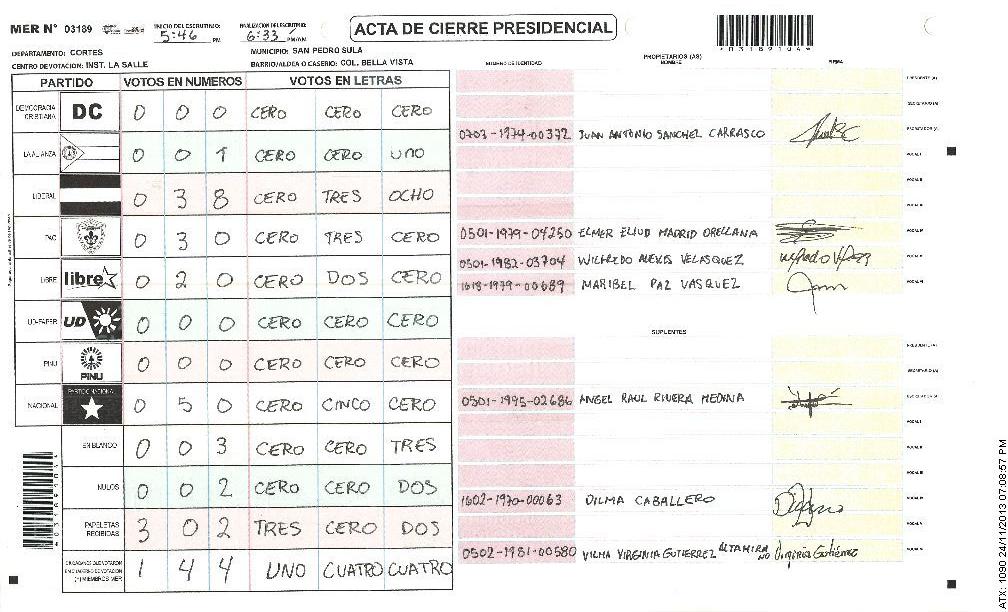 MER N° 03189 INICIO DEL ESCRUTINIO: 5:46 PM FINALIZACION DEL ESCRUTINIO: 6:33 PM/AM ACTA DE CIERRE PRESIDENCIAL
DEPARTAMENTO: CORTES MUNICIPIO: SAN PEDRO SULA
CENTRO DE VOTACION: INST. LA SALLE BARRIO/ALDEA O CASERIO: COL. BELLA VISTA
PARTIDO VOTOS EN NUMEROS VOTOS EN LETRAS
DEMOCRACIA CRISTIANA DC 0 0 0 CERO CERO CERO
LA ALIANZA 0 0 1 CERO CERO UNO
LIBERAL 0 3 8 CERO TRES OCHO
PAC 0 3 0 CERO TRES CERO
LIBRE libre 0 2 0 CERO DOS CERO
UD-FAPER UD 0 0 0 CERO CERO CERO
PINU PINU 0 0 0 CERO CERO CERO
NACIONAL PARTIDO NACIONAL 0 5 0 CERO CINCO CERO
EN BLANCO 0 0 3 CERO CERO TRES
NULOS 0 0 2 CERO CERO DOS
PAPELETAS RECIBIDAS 3 0 2 TRES CERO DOS
CIUDADANOS QUE VOTARON EN CUADERNO DE VOTACION (+) MIEMBROS MER 1 4 4 UNO CUATRO CUATRO
PROPIETARIOS (AS)
NUMERO DE IDENTIDAD NOMBRE FIRMA
PRESIDENTE (A)
SECRETARIO (A)
0703-1974-00372 JUAN ANTONIO SANCHEL CARRASCO ESCRUTADOR (A)
VOCAL I
VOCAL II
VOCAL III
0501-1979-04250 ELMER ELIUD MADRID ORELLANA VOCAL IV
0501-1982-03704 WILFREDO ALEXIS VELASQUEZ VOCAL V
1618-1979-00689 MARIBEL PAZ VASQUEZ VOCAL VI
SUPLENTES
PRESIDENTE (A)
SECRETARIO (A)
0501-1995-02686 ANGEL RAUL RIVERA MEDINA ESCRUTADOR (A)
VOCAL I
VOCAL II
VOCAL III
1602-1970-00063 DILMA CABALLERO VOCAL IV
VOCAL V
0502-1981-00580 VILMA VIRGINIA GUTIERREZ ALTAMIRANO Virginia Gutiérrez
*03189104*
ATX: 1090 24/11/2013 07:08:57 PM